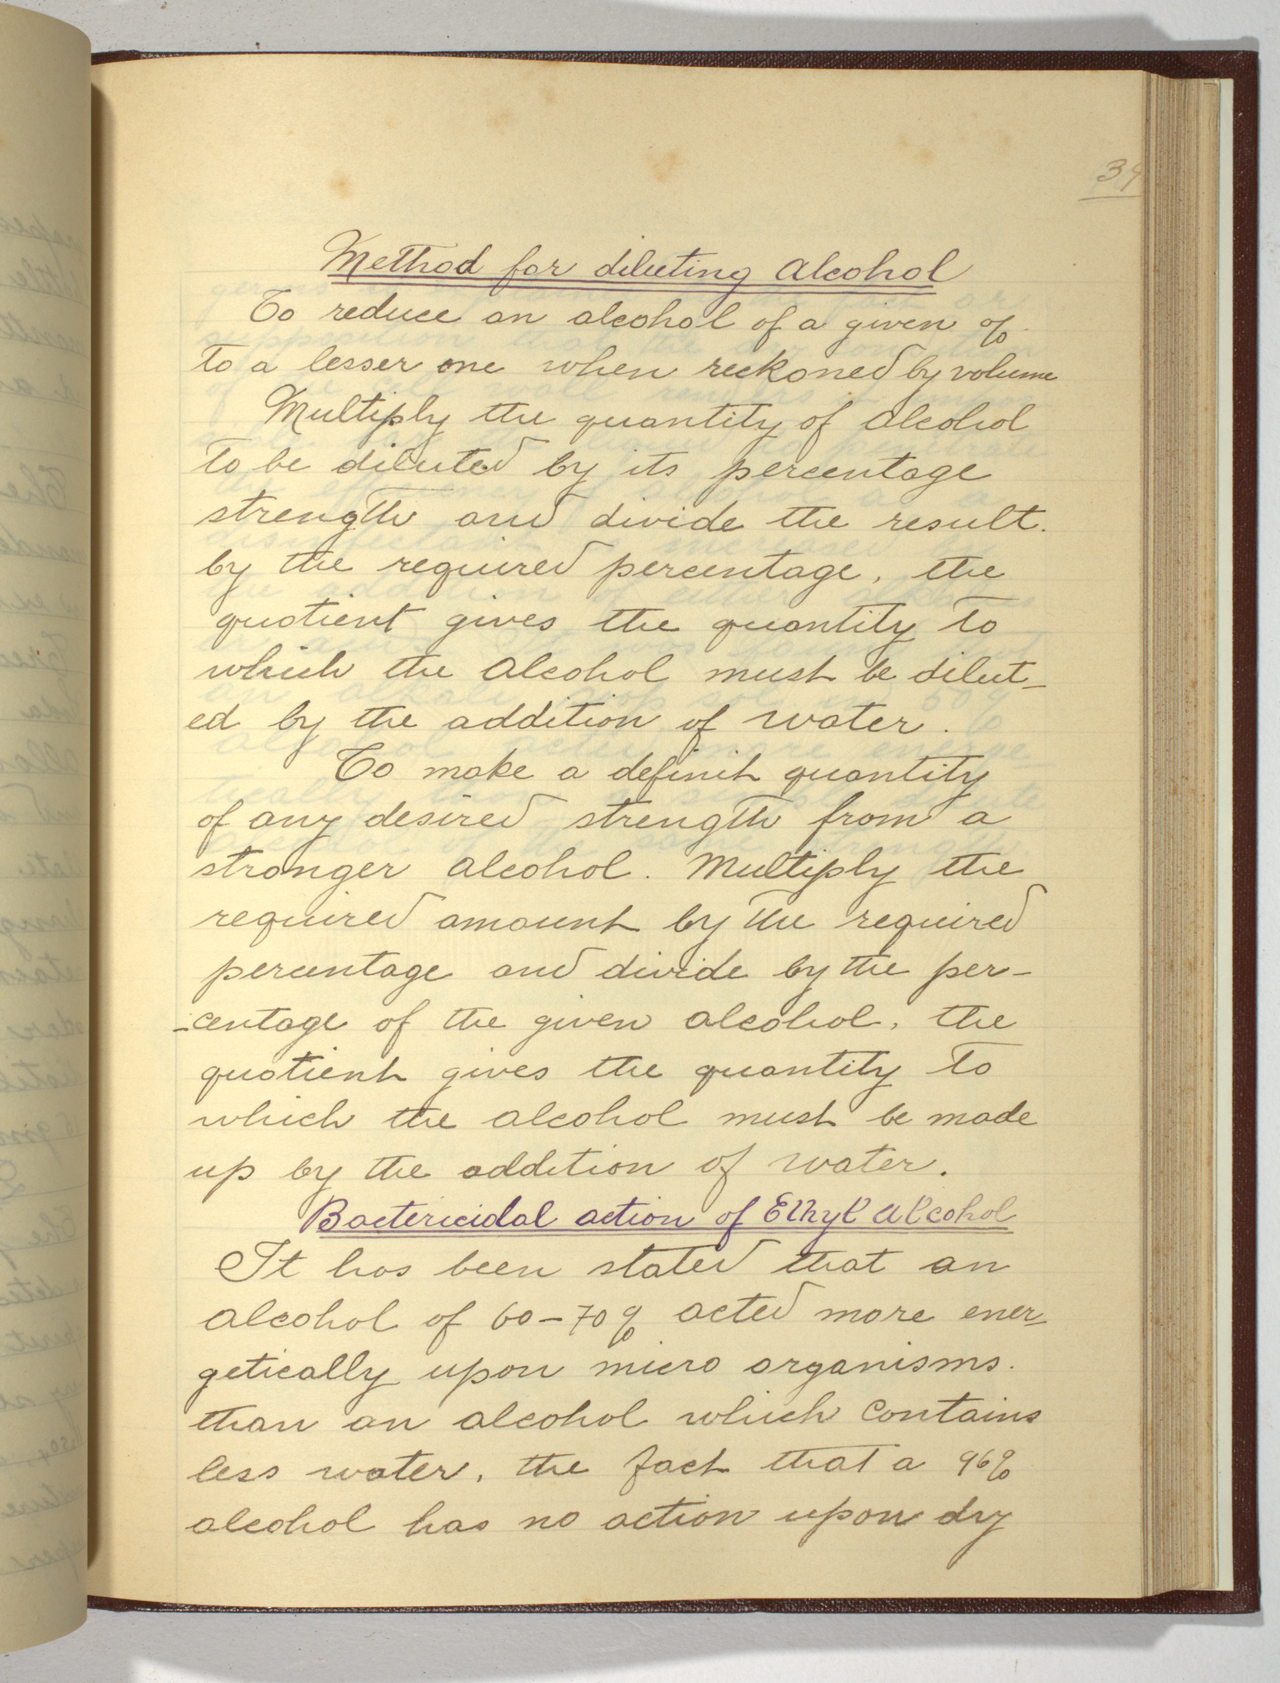 Method for diluting Alcohol
To reduce an alcohol of a given %
to a lesser one when reckoned by volume
Multiply the quantity of Alcohol
to be diluted by its percentage
strength and divide the result.
by the required percentage, the
quotient gives the quantity to
which the Alcohol must be dilut-
ed by the addition of water.
To make a definit quantity
of any desired strength from a
stronger Alcohol. Multiply the
required amount by the required
percentage and divide by the per-
-centage of the given alcohol, the
quotient gives the quantity to
which the alcohol must be made
up by the addition of water.
Bactericidal action of Ethyl Alcohol
It has been stated that an
alcohol of 60-70% acted more ener-
getically upon micro organisms.
than an alcohol which contains
less water, the fact that a 96%
alcohol has no action upon dry